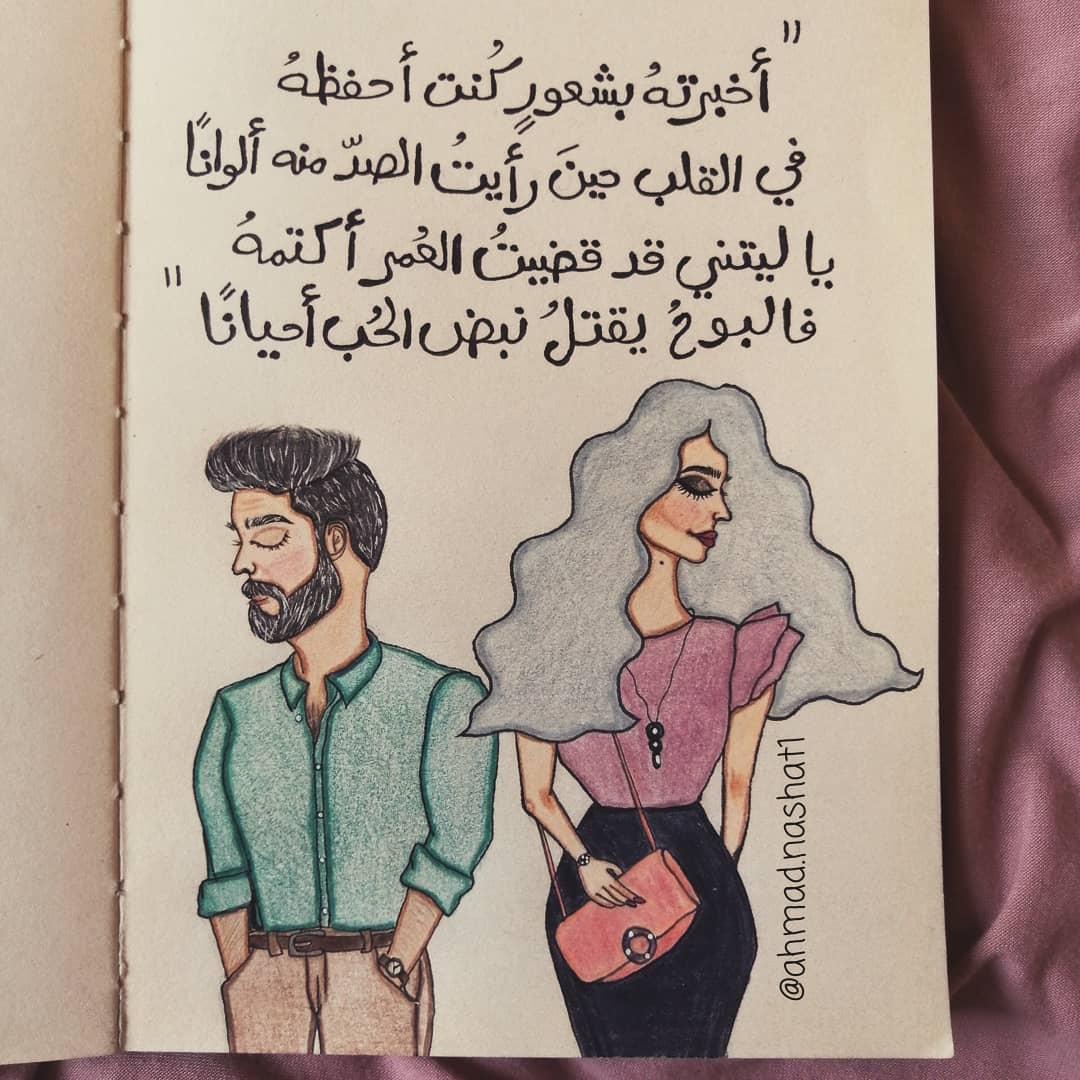 "أخبرتهُ بشعورٍ كُنت أحفظهُ
في القلب حينَ رأيتُ الصدّ منه ألوانًا
يا ليتني قد قضيتُ العُمر أكتمهُ
فالبوحُ يقتلُ نبض الحُب أحيانًا"
@ahmad.nashat1